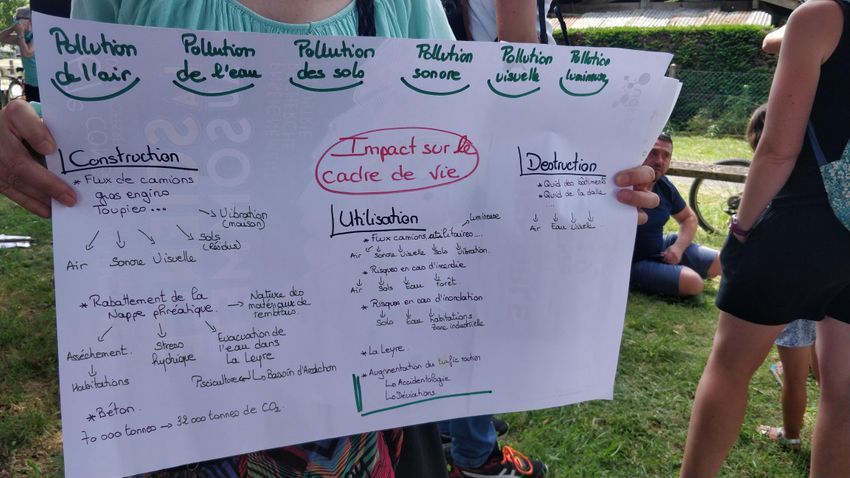 Pollution de l'air
Pollution de l'eau
Pollution des sols
Pollution sonore
Pollution visuelle
Pollution lumineuse
Impact sur le
cadre de vie
Construction
* Flux de camions
gros engins
Toupies ...
Vibration
(maison)
Sols
(Résidus)
Air Sonore Visuelle
* Rabattement de la
Nappe phréatique
Nature des
matériaux de
remblais.
Asséchement.
Stress
hydrique
Evacuation de
l'eau dans
La Leyre
Habitations
Pisciculture
Bassin d'Arcachon
* Béton.
70 000 tonnes → 32 000 tonnes de CO2
Utilisation
Lumineuse
* Flux camions, utilitaires....
Air Sonore Visuelle Sols Vibration
* Risques en cas d'incendie
Air Sols Eau Forêt
* Risques en cas d'inondation
Sols Eau habitations
zone industrielle
* La Leyre
* Augmentation du trafic routier
↳ Accidentologie
↳ Déviations
Destruction
* Quid des bâtiments
* Quid de la dalle
...
Air Eau Visuelle ...